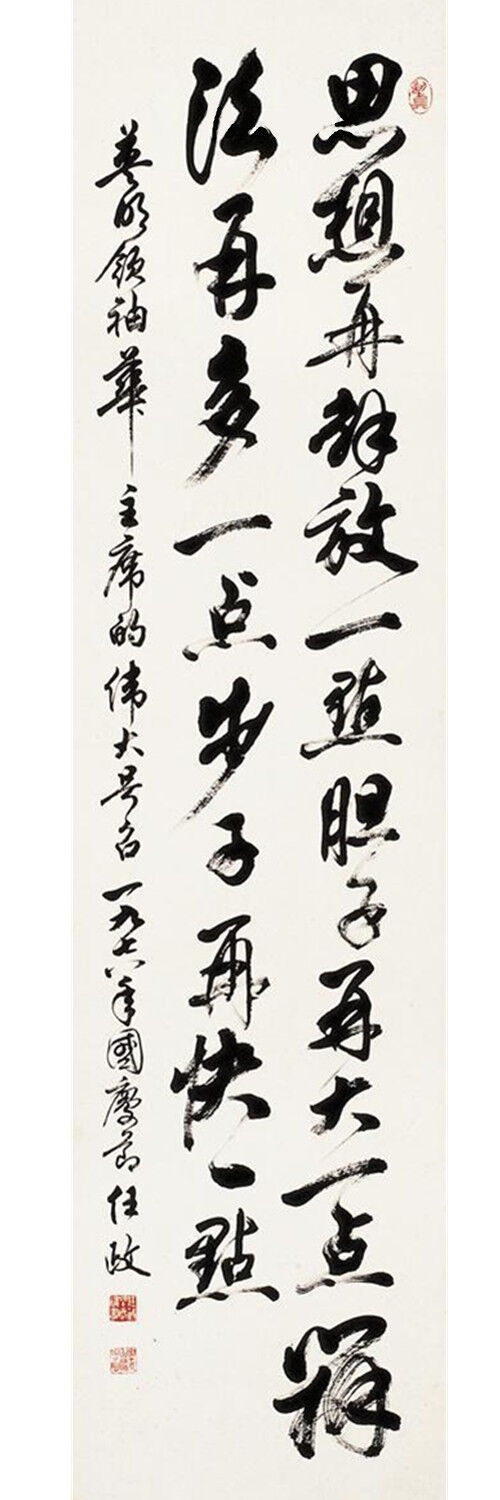 思想再解放一點胆子再大一点辦
法再多一点步子再快一點
英明领袖華主席的伟大号召一九七八年國慶节任政